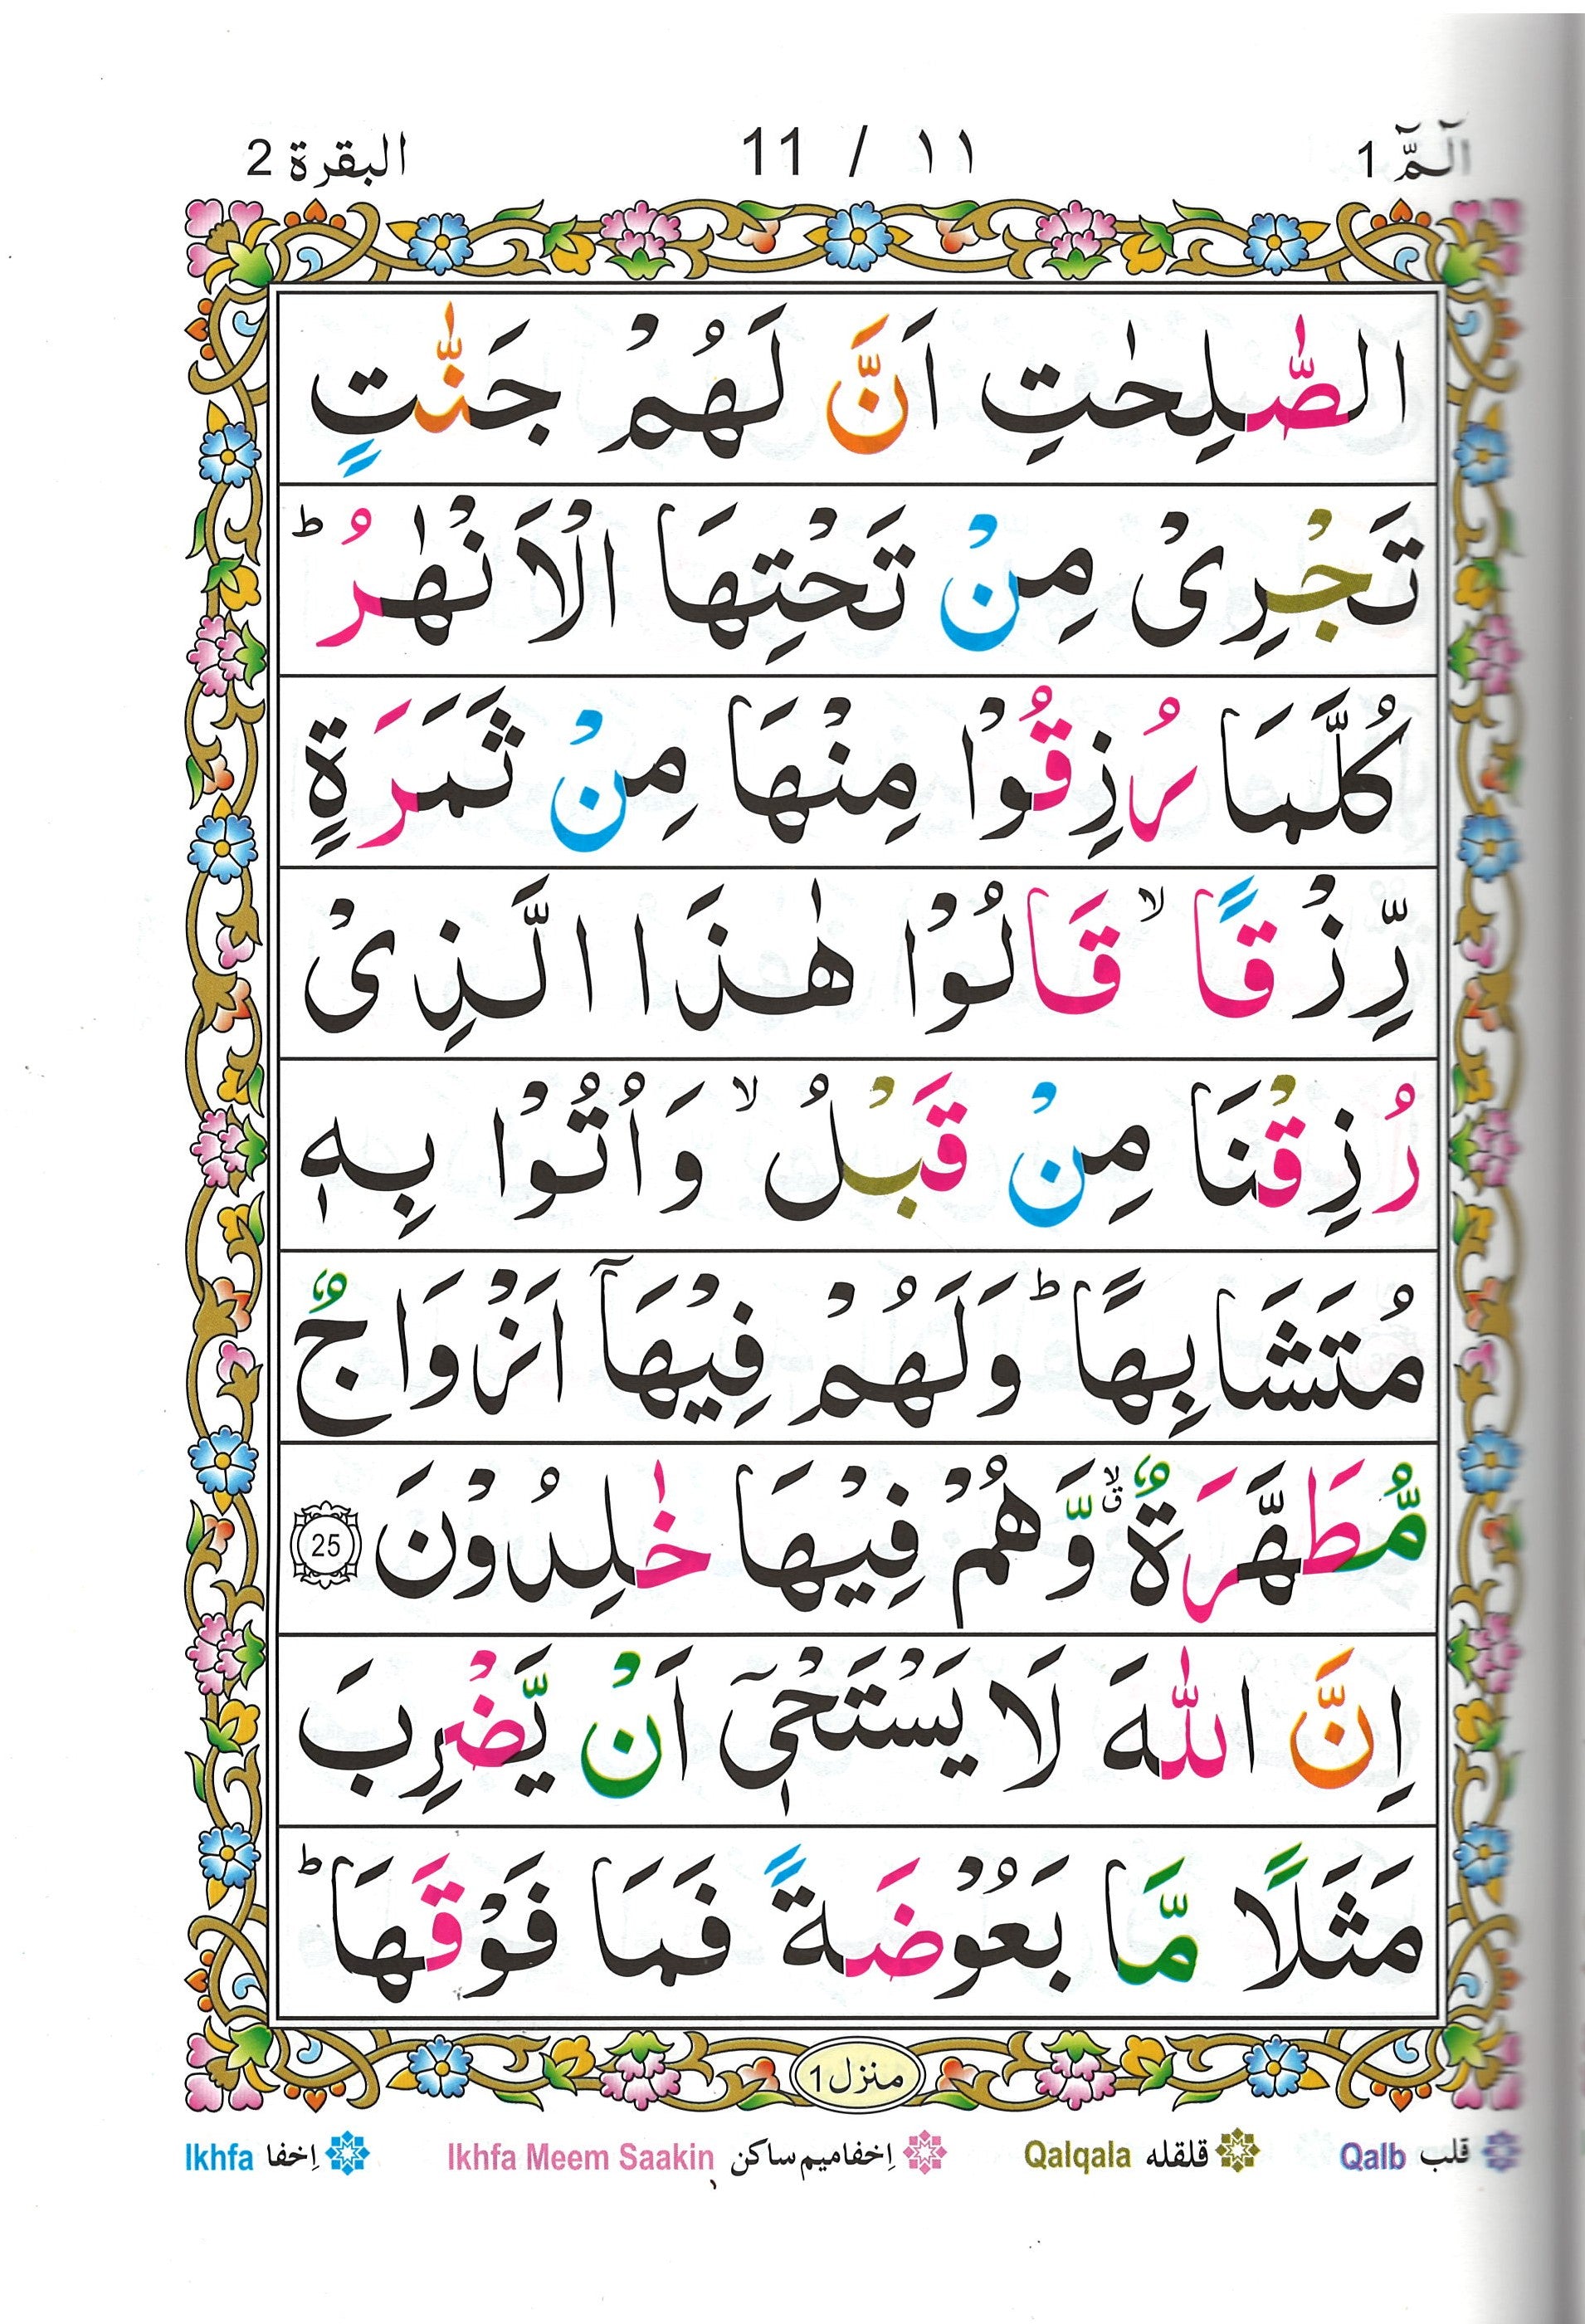 الٓمّٓ 1
11 / ١١
البقرة 2
الصّٰلِحٰتِ اَنَّ لَهُمْ جَنّٰتٍ
تَجْرِیْ مِنْ تَحْتِهَا الْاَنْهٰرُ ؕ
كُلَّمَا رُزِقُوْا مِنْهَا مِنْ ثَمَرَةٍ
رِّزْقًا ۙ قَالُوْا هٰذَا الَّذِیْ
رُزِقْنَا مِنْ قَبْلُ ۙ وَاُتُوْا بِهٖ
مُتَشَابِهًا ؕ وَلَهُمْ فِیْهَاۤ اَزْوَاجٌ
مُّطَهَّرَةٌ ۙۗ وَّهُمْ فِیْهَا خٰلِدُوْنَ 25
اِنَّ اللّٰهَ لَا یَسْتَحْیٖۤ اَنْ یَّضْرِبَ
مَثَلًا مَّا بَعُوْضَةً فَمَا فَوْقَهَا ؕ
منزل 1
قلب Qalb قلقله Qalqala اِخفا میم ساکن Ikhfa Meem Saakin اِخفا Ikhfa